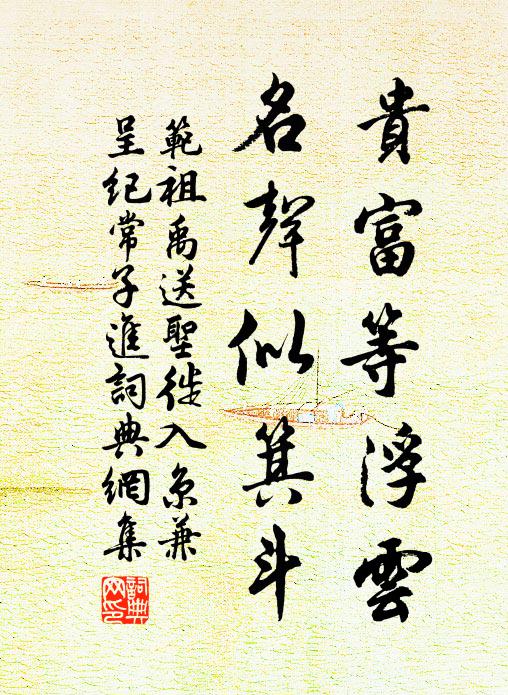 貴富等浮雲
名聲似箕斗
範祖禹送聖徙入京兼
呈紀常子進詞典網集
詞典
网印